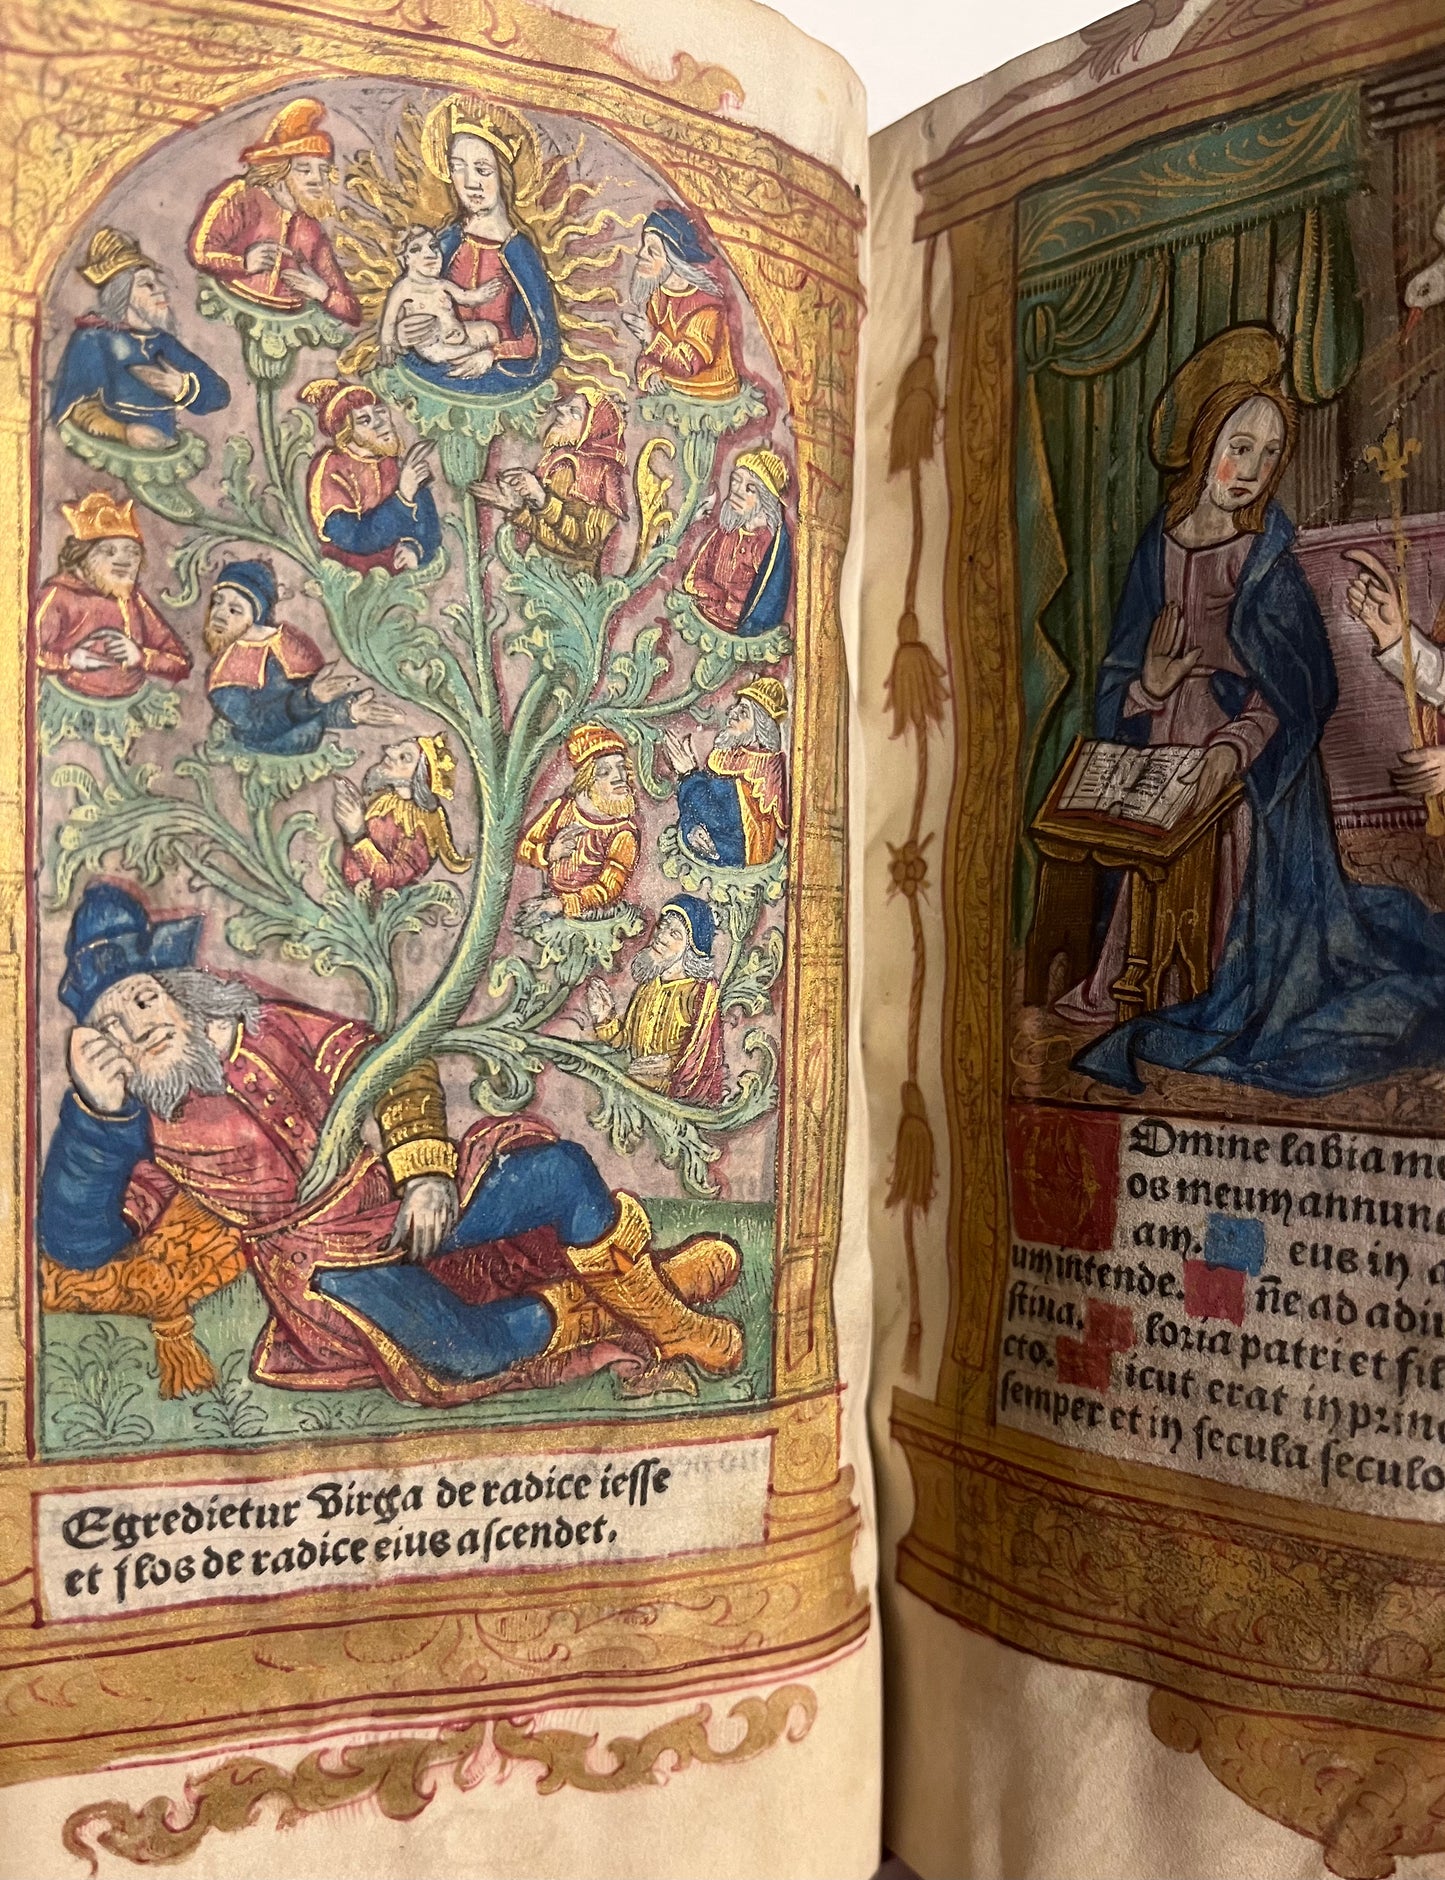 Egredietur Virga de radice iesse
et flos de radice eius ascendet.
Domine labia me
os meum annun
am. eus in a
um intende. n̄e ad adiu
stina. loria patri et fil
cto. icut erat in prin
semper et in secula seculo